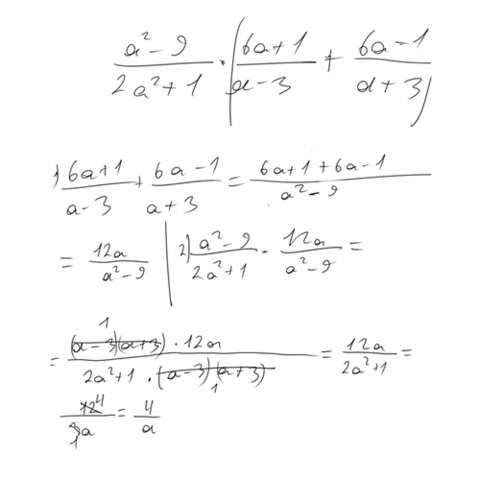 (a² - 9)/(2a² + 1) · ((6a+1)/(a-3) + (6a-1)/(a+3))
1) (6a+1)/(a-3) + (6a-1)/(a+3) = (6a+1+6a-1)/(a²-9)
= 12a/(a²-9) | 2) (a²-9)/(2a²+1) · 12a/(a²-9) =
= ((a-3)(a+3) · 12a)/(2a²+1 · (a-3)(a+3)) = 12a/(2a²+1) =
12/3a = 4/a